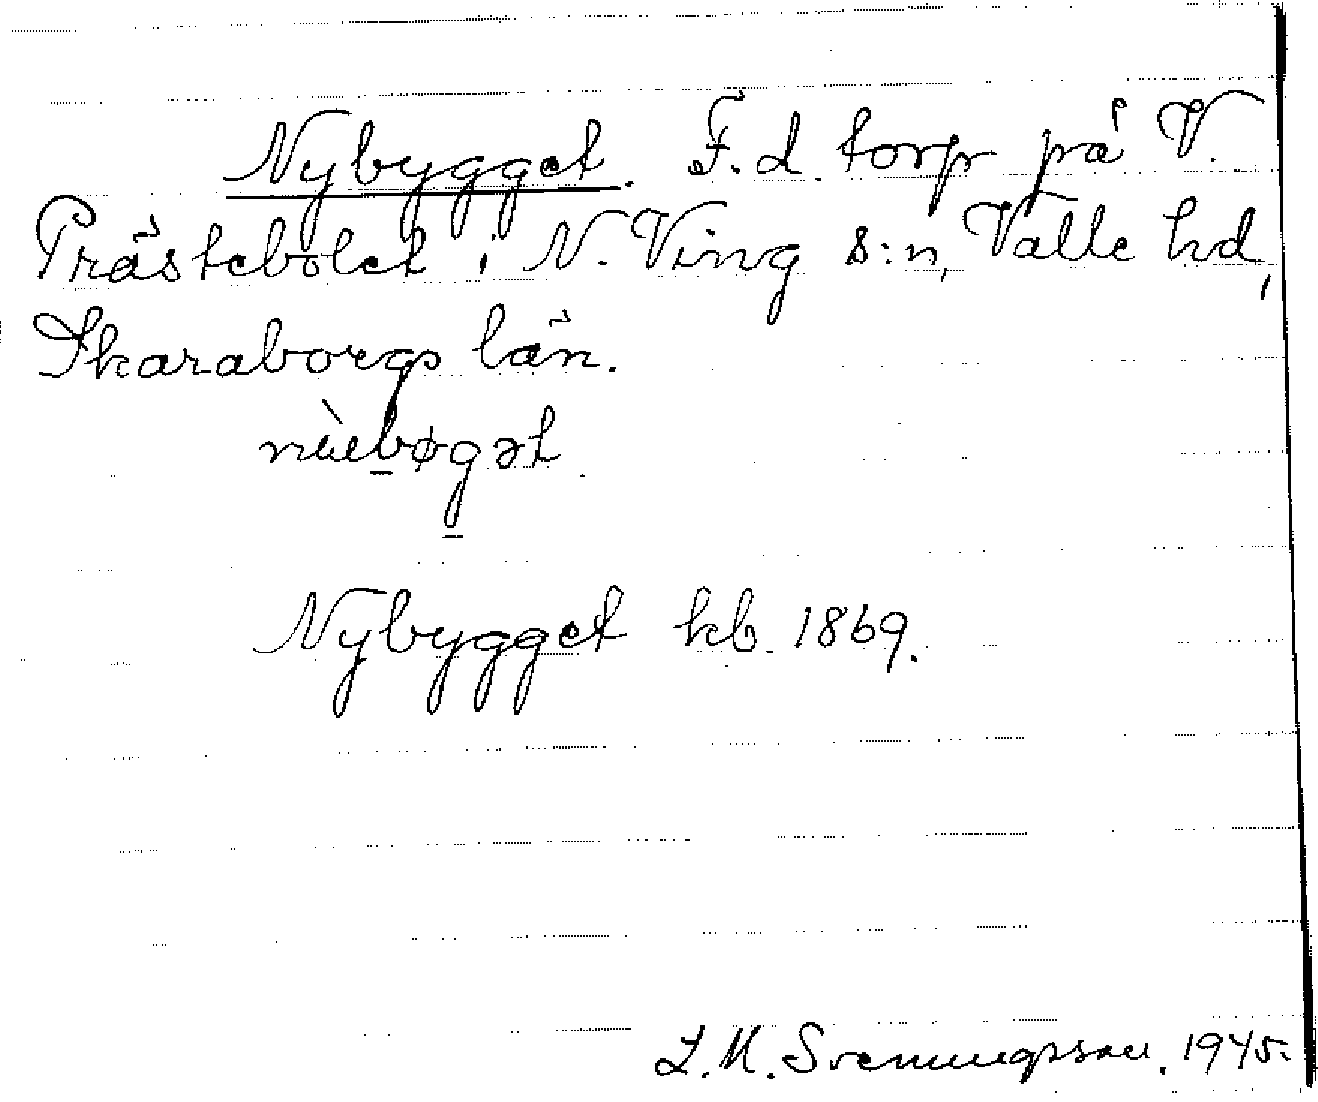 Nybygget. F.d. torp på V.
Prästebolet i N. Ving s:n, Valle hd,
Skaraborgs län.
Nybygget kb. 1869.
L.M. Svenungsson. 1945.